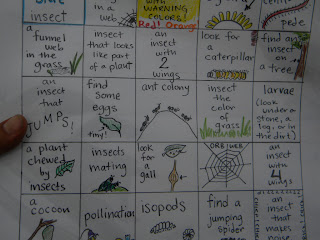 insect
in a
web
with
WARNING
COLORS!
Red! Orange
pede
a
funnel
web
in the
grass
insect
that looks
like part
of a plant
an
insect
with
2
wings
look for
a
caterpillar
find an
insect
on
a tree
an
insect
that
JUMPS!
find
some
eggs
tiny!
ant colony
insect
the color
of
grass
larvae
(look
under a
stone, a
log, or in
the dirt)
a plant
chewed
by
insects
insects
mating
look
for
a
gall
ORB WEB
an
insect
with
4
wings
a
cocoon
pollination
isopods
find a
jumping
spider
an
insect
that
makes
noise